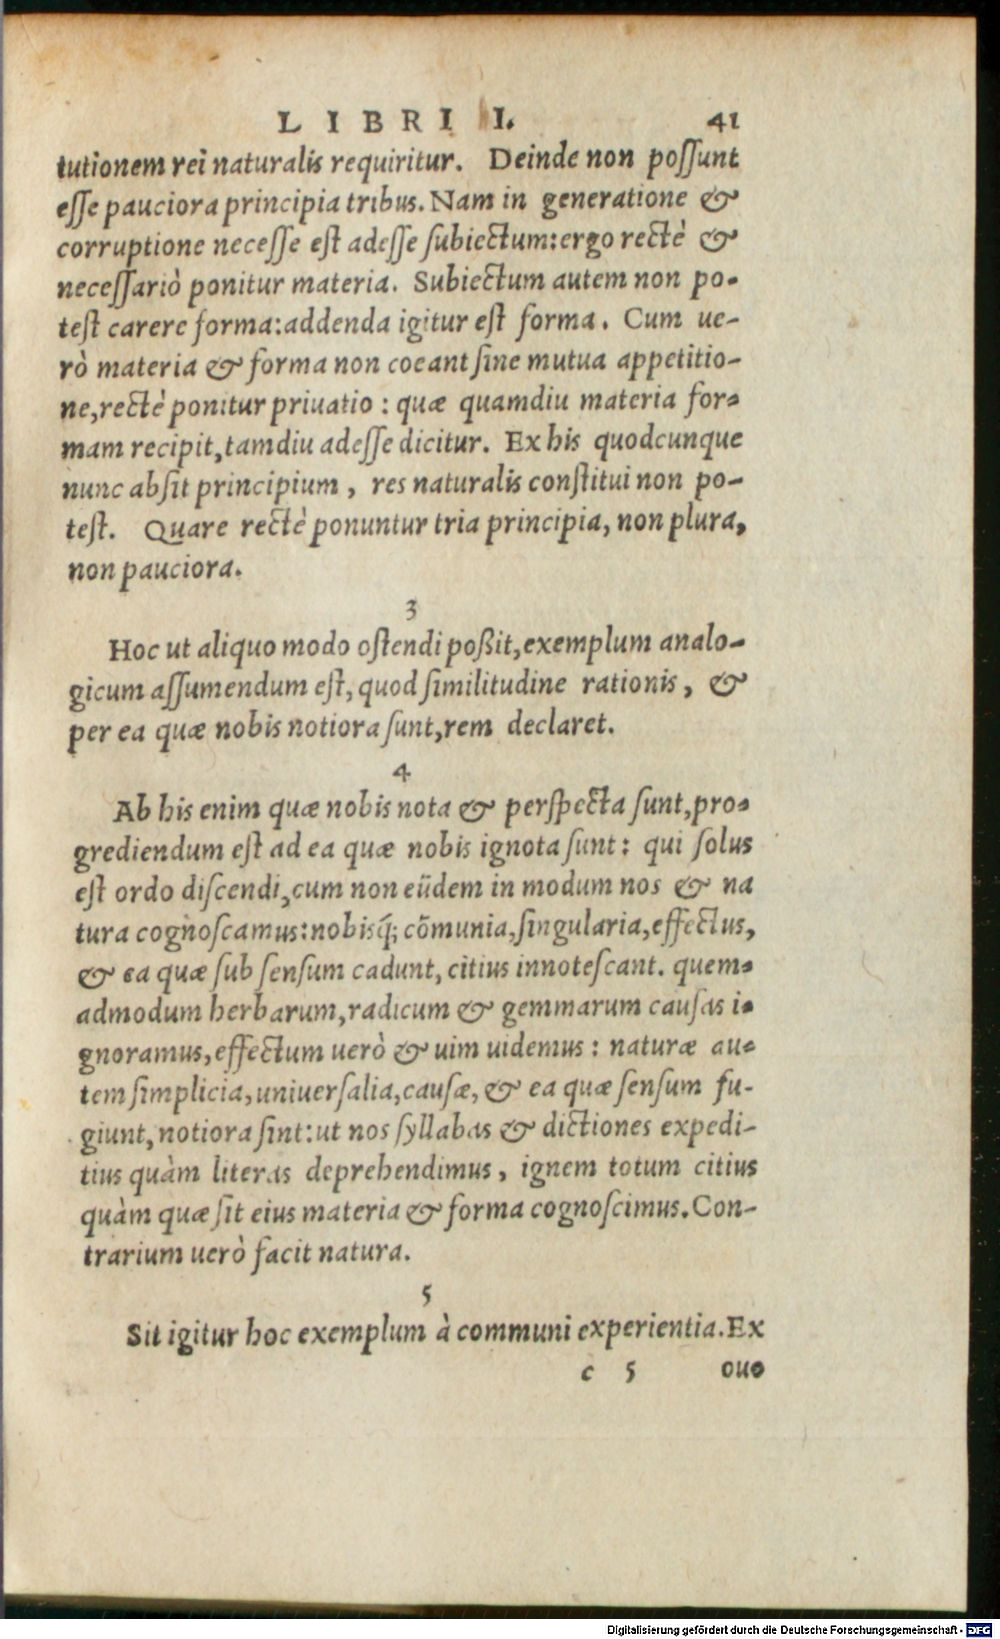 LIBRI I. 41
tutionem rei naturalis requiritur. Deinde non poſſunt
eſſe pauciora principia tribus. Nam in generatione &
corruptione neceſſe eſt adeſſe ſubiectum: ergo rectè &
neceſſariò ponitur materia. Subiectum autem non po-
teſt carere forma: addenda igitur eſt forma. Cum ue-
rò materia & forma non coeant ſine mutua appetitio-
ne, rectè ponitur priuatio: quæ quamdiu materia for-
mam recipit, tamdiu adeſſe dicitur. Ex his quodcunque
nunc abſit principium, res naturalis conſtitui non po-
teſt. Quare rectè ponuntur tria principia, non plura,
non pauciora.
3
Hoc ut aliquo modo oſtendi poßit, exemplum analo-
gicum aſſumendum eſt, quod ſimilitudine rationis, &
per ea quæ nobis notiora ſunt, rem declaret.
4
Ab his enim quæ nobis nota & perſpecta ſunt, pro-
grediendum eſt ad ea quæ nobis ignota ſunt: qui ſolus
eſt ordo diſcendi, cum non eūdem in modum nos & na
tura cognoſcamus: nobisq́; cōmunia, ſingularia, effectus,
& ea quæ ſub ſenſum cadunt, citius innoteſcant. quem-
admodum herbarum, radicum & gemmarum cauſas i-
gnoramus, effectum uerò & uim uidemus: naturæ au-
tem ſimplicia, uniuerſalia, cauſæ, & ea quæ ſenſum fu-
giunt, notiora ſint: ut nos ſyllabas & dictiones expedi-
tius quàm literas deprehendimus, ignem totum citius
quàm quæ ſit eius materia & forma cognoſcimus. Con-
trarium uerò facit natura.
5
Sit igitur hoc exemplum à communi experientia. Ex
c 5 ouo
Digitalisierung gefördert durch die Deutsche Forschungsgemeinschaft - DFG